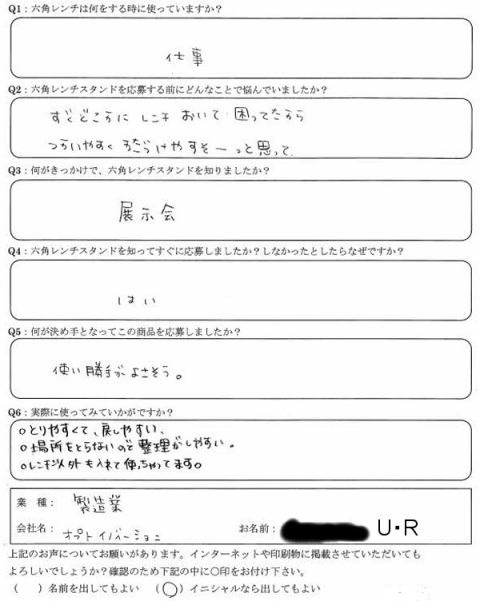 Q1：六角レンチは何をする時に使っていますか？
仕事
Q2：六角レンチスタンドを応募する前にどんなことで悩んでいましたか？
すぐどこかに レンチ おいて 困ってたから
つかいやすく
と思って
Q3：何がきっかけで、六角レンチスタンドを知りましたか？
展示会
Q4：六角レンチスタンドを知ってすぐに応募しましたか？しなかったとしたらなぜですか？
はい
Q5：何が決め手となってこの商品を応募しましたか？
使い勝手がよさそう。
Q6：実際に使ってみていかがですか？
○とりやすくて、戻しやすい、
○場所をとらないので整理がしやすい。
○レンチ以外も入れて使っちゃってます。
業 種： 製造業
会社名：
お名前： U・R
上記のお声についてお願いがあります。インターネットや印刷物に掲載させていただいても
よろしいでしょうか？確認のため下記の中に○印をお付け下さい。
（ ）名前を出してもよい （○）イニシャルなら出してもよい